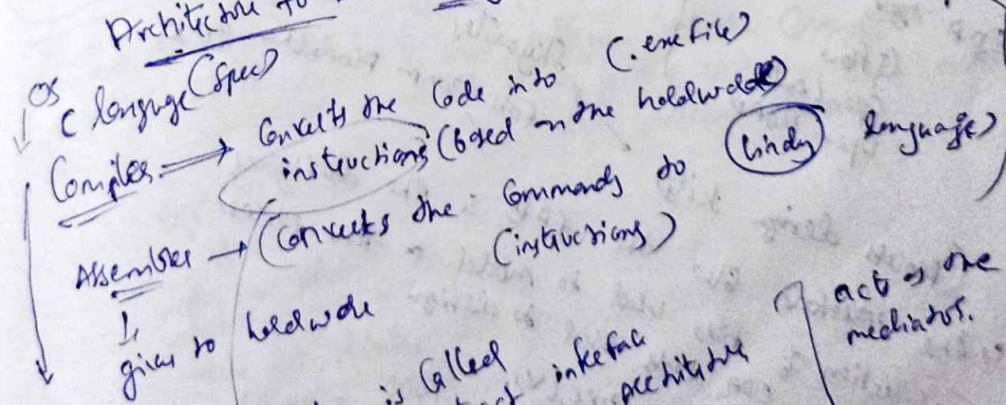 Architecture to
OS
C language (spec)
Compiler => Converts the Code into (.exe file)
instructions (based on the hardware)
Assembler → (Converts the Commands to binary language)
(instructions)
gives to hardware
is Called
interface
architecture
act as the
mediator.